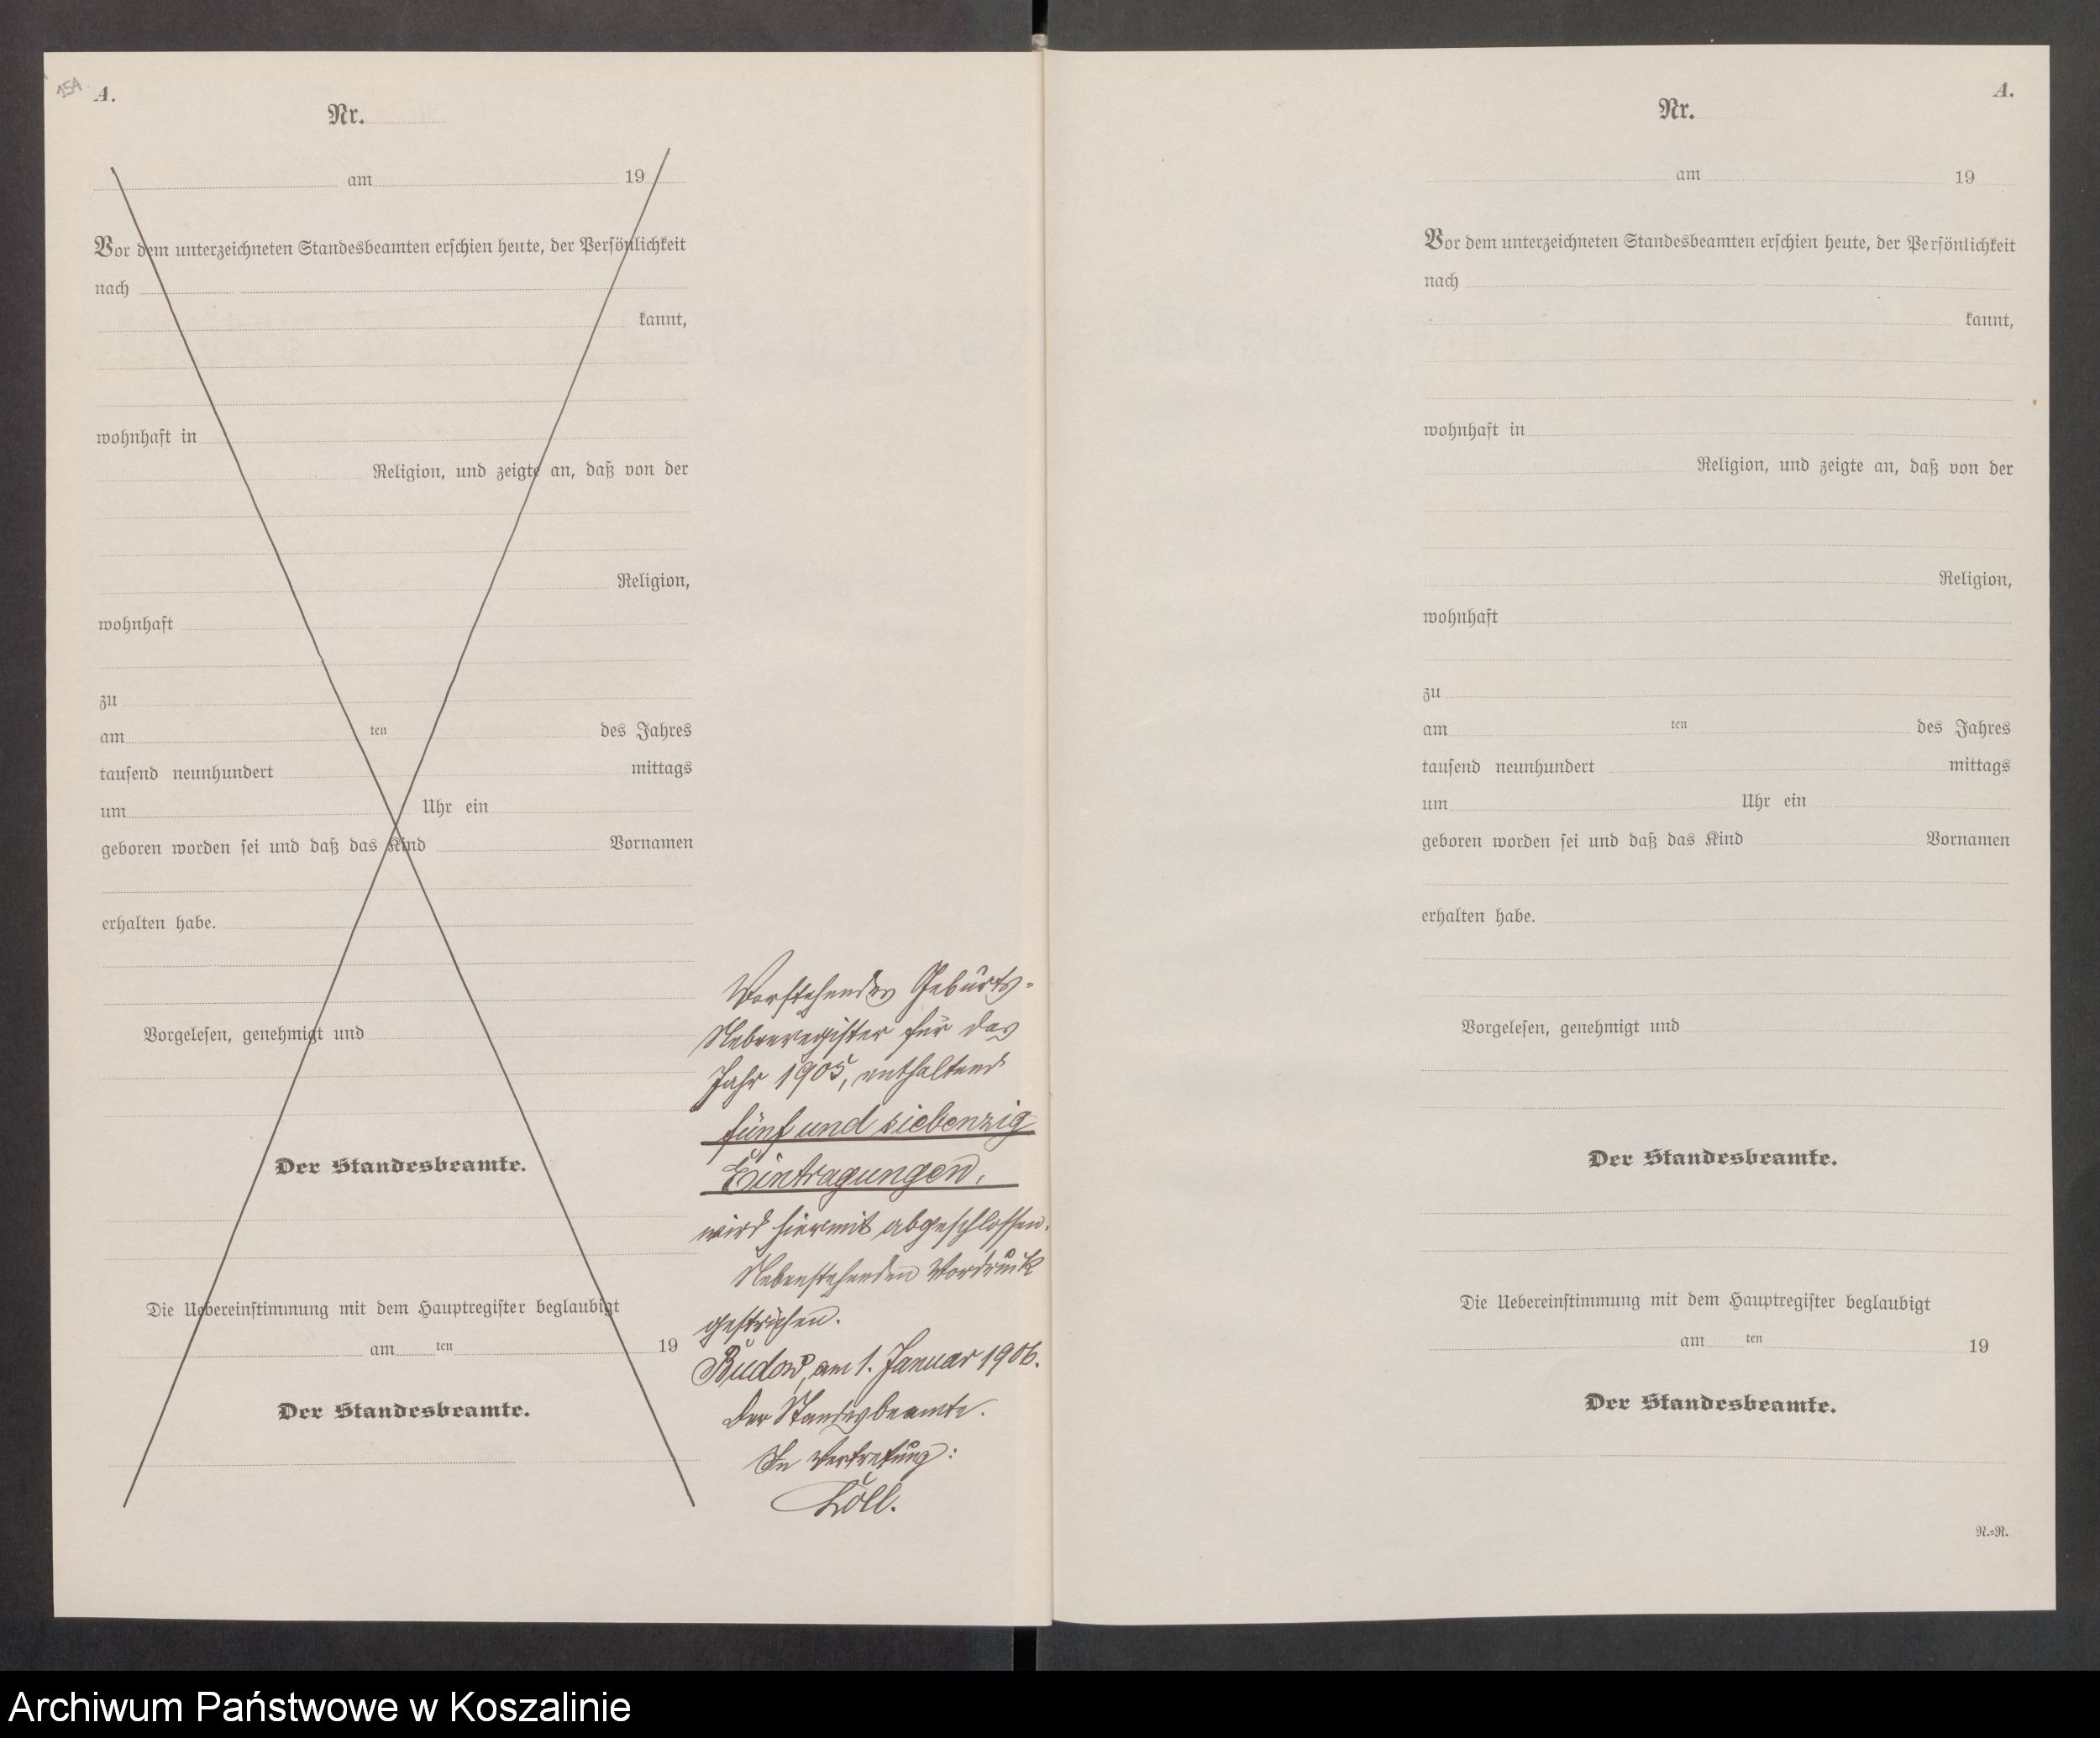 154
A.
Nr.
am 19
Vor dem unterzeichneten Standesbeamten erschien heute, der Persönlichkeit
nach
kannt,
wohnhaft in
Religion, und zeigte an, daß von der
Religion,
wohnhaft
zu
am ten des Jahres
tausend neunhundert mittags
um Uhr ein
geboren worden sei und daß das Kind Vornamen
erhalten habe.
Vorgelesen, genehmigt und
Der Standesbeamte.
Die Uebereinstimmung mit dem Hauptregister beglaubigt
am ten 19
Der Standesbeamte.
Vorstehendes Geburts-
Nebenregister für das
Jahr 1905, enthaltend
fünf und siebenzig
Eintragungen,
wird hiermit abgeschlossen.
Nebenstehenden Vordruck
gestrichen.
Budow, am 1. Januar 1906.
Der Standesbeamte.
In Vertretung:
Köll.
A.
Nr.
am 19
Vor dem unterzeichneten Standesbeamten erschien heute, der Persönlichkeit
nach
kannt,
wohnhaft in
Religion, und zeigte an, daß von der
Religion,
wohnhaft
zu
am ten des Jahres
tausend neunhundert mittags
um Uhr ein
geboren worden sei und daß das Kind Vornamen
erhalten habe.
Vorgelesen, genehmigt und
Der Standesbeamte.
Die Uebereinstimmung mit dem Hauptregister beglaubigt
am ten 19
Der Standesbeamte.
N.=R.
Archiwum Państwowe w Koszalinie